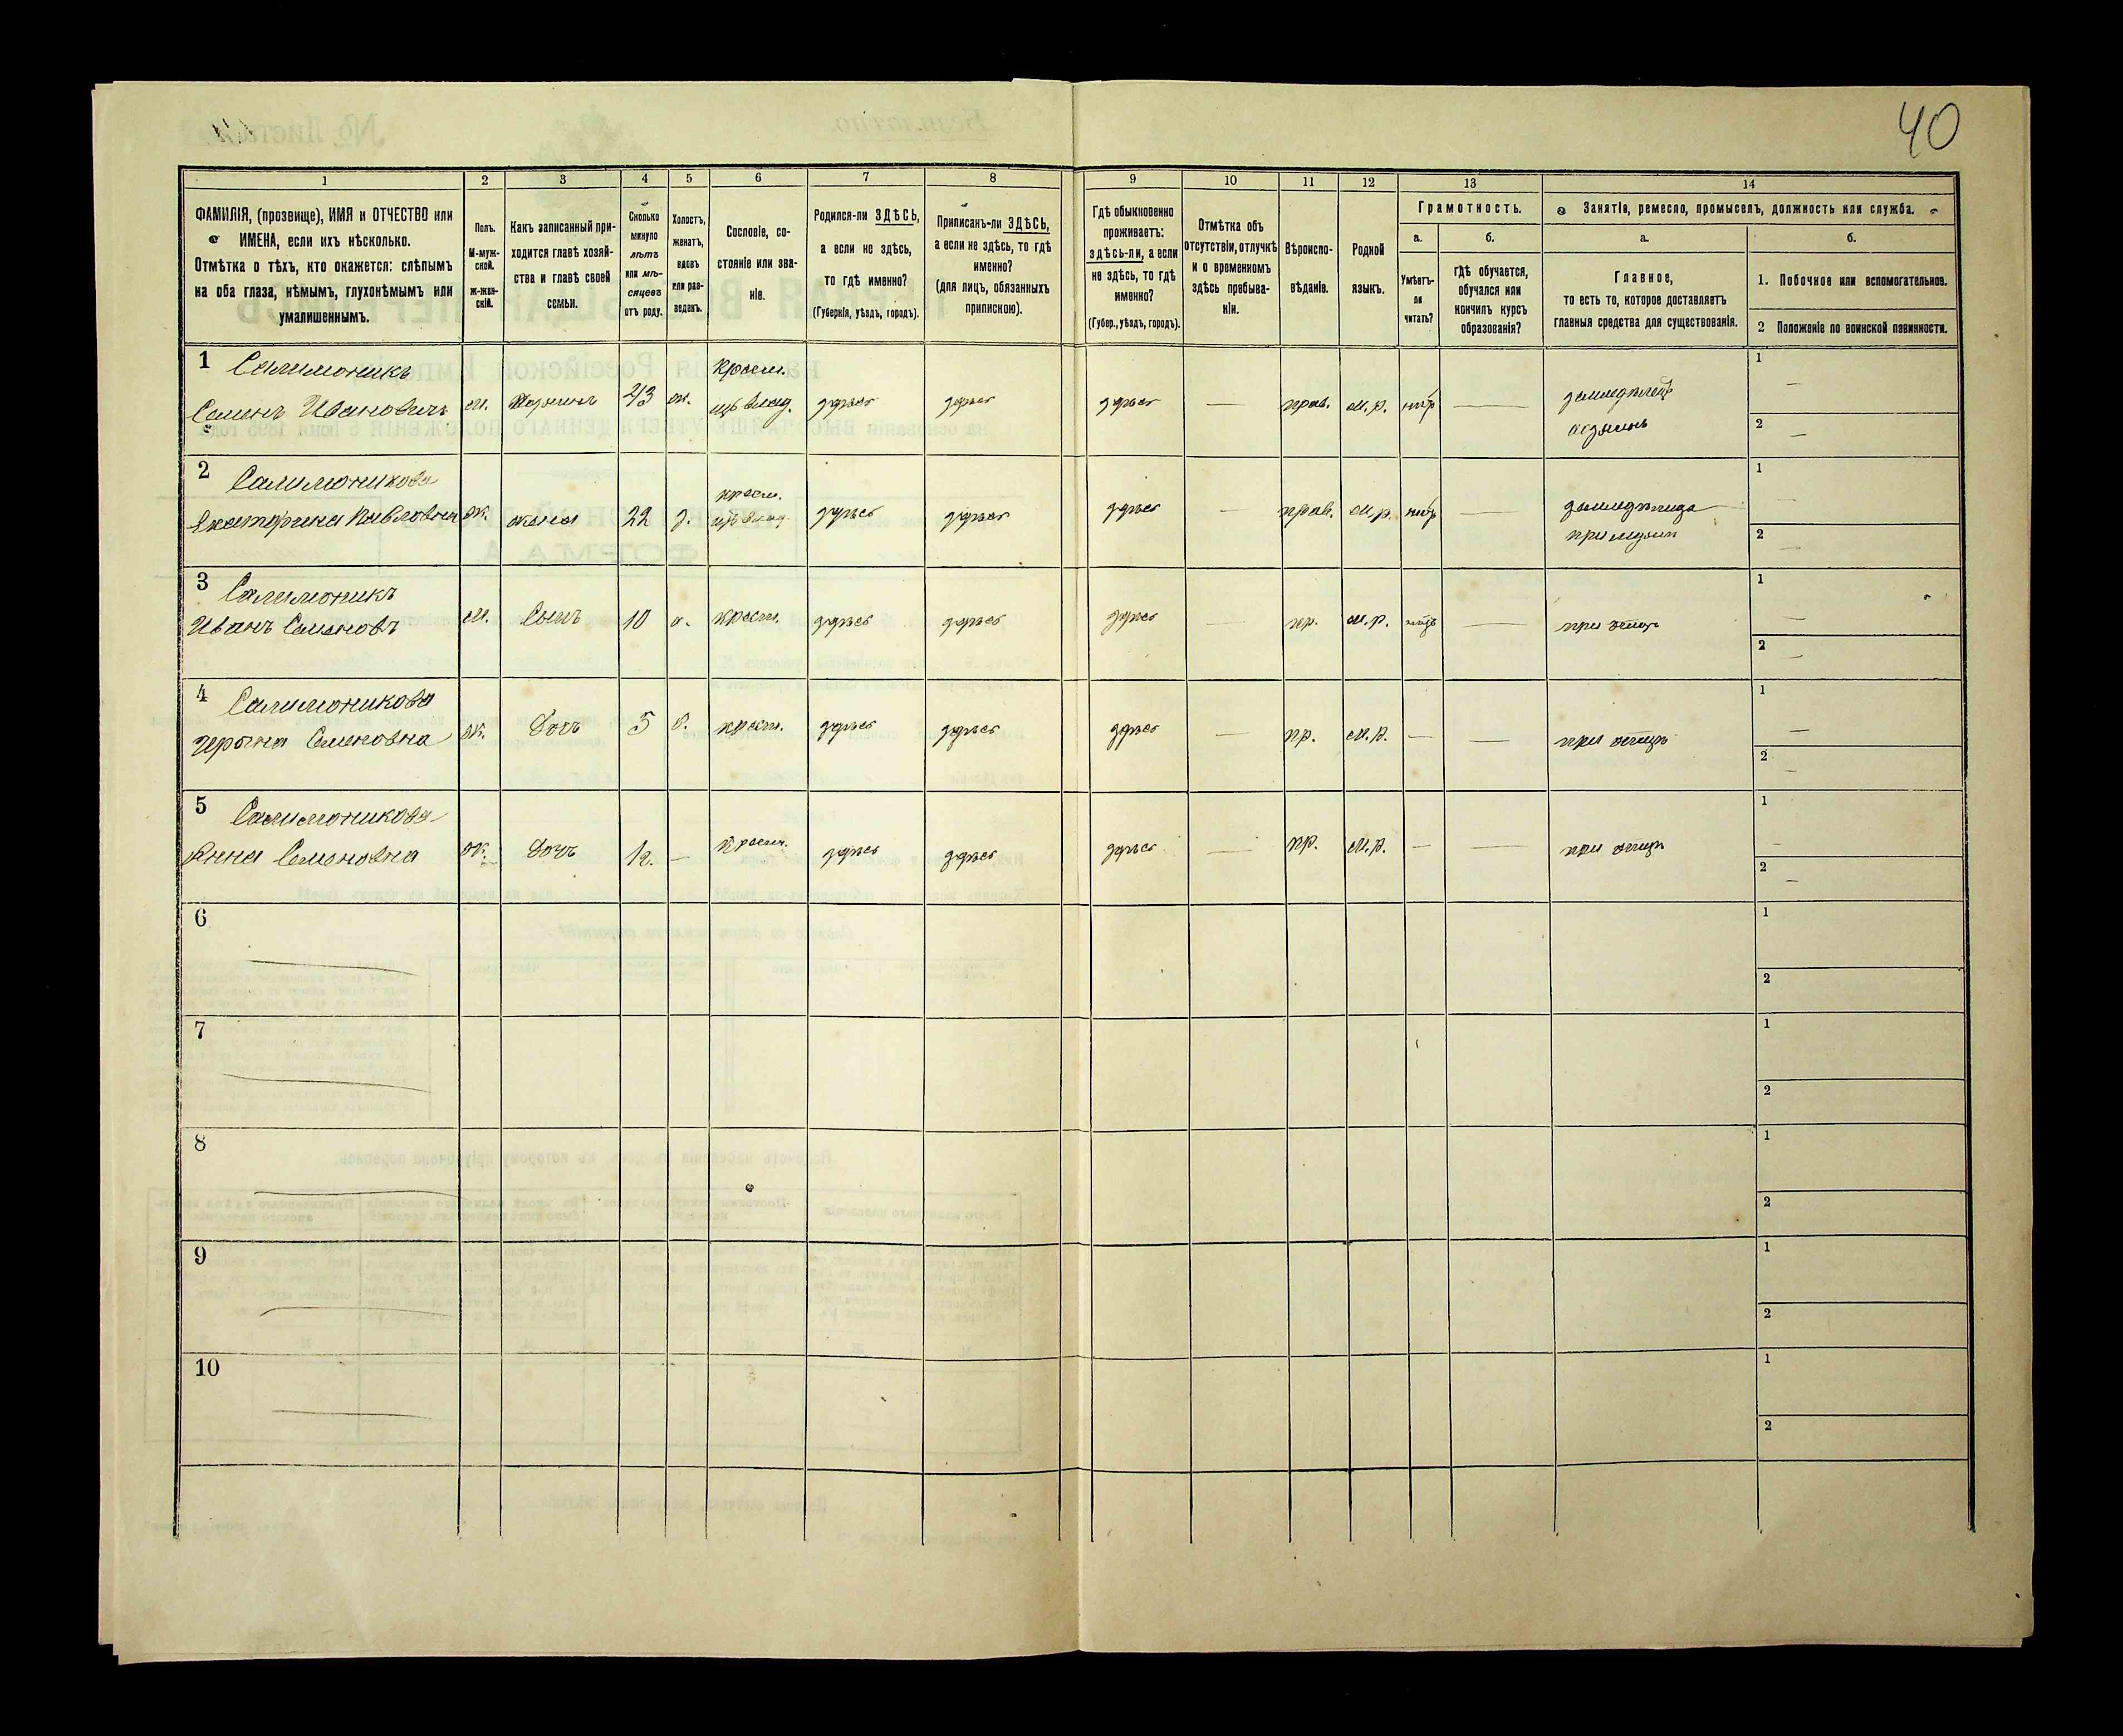 40
1
2
3
4
5
6
7
8
9
10
11
12
13
14
ФАМИЛІЯ, (прозвище), ИМЯ и ОТЧЕСТВО или
ИМЕНА, если ихъ нѣсколько.
Отмѣтка о тѣхъ, кто окажется: слѣпымъ
на оба глаза, нѣмымъ, глухонѣмымъ или
умалишеннымъ.
Полъ.
М-муж-
ской.
Ж-жен-
скій.
Какъ записанный при-
ходится главѣ хозяй-
ства и главѣ своей
семьи.
Сколько
минуло
лѣтъ
или мѣ-
сяцевъ
отъ роду.
Холостъ,
женатъ,
вдовъ
или раз-
веденъ.
Сословіе, со-
стояніе или зва-
ніе.
Родился-ли ЗДѢСЬ,
а если не здѣсь,
то гдѣ именно?
(Губернія, уѣздъ, городъ).
Приписанъ-ли ЗДѢСЬ,
а если не здѣсь, то гдѣ
именно?
(для лицъ, обязанныхъ
припискою).
Гдѣ обыкновенно
проживаетъ:
здѣсь-ли, а если
не здѣсь, то гдѣ
именно?
(Губер., уѣздъ, городъ).
Отмѣтка объ
отсутствіи, отлучкѣ
и о временномъ
здѣсь пребыва-
ніи.
Вѣроиспо-
вѣданіе.
Родной
языкъ.
Грамотность.
а.
Умѣетъ-
ли
читать?
б.
гдѣ обучается,
обучался или
кончилъ курсъ
образованія?
Занятіе, ремесло, промыселъ, должность или служба.
а.
Главное,
то есть то, которое доставляетъ
главныя средства для существованія.
б.
1. Побочное или вспомогательное.
2 Положеніе по воинской повинности.
1 Салимоникъ
Семенъ Ивановичъ м. Хозяинъ 43 ж. крест. здѣсь здѣсь здѣсь — прав. м.р. нѣтъ — земледѣлецъ
хозяинъ
1 —
2 —
2 Салимоникова
Екатерина Павловна ж. жена 22 з. крест. здѣсь здѣсь здѣсь — прав. м.р. нѣтъ — 
1 —
2 —
3 Салимоникъ
Иванъ Семеновъ м. Сынъ 10 х. крест. здѣсь здѣсь здѣсь — пр. м.р. нѣтъ — при отцѣ
1 —
2 —
4 Салимоникова
Семеновна ж. Дочь 5 крест. здѣсь здѣсь здѣсь — пр. м.р. — — при отцѣ
1 —
2 —
5 Салимоникова
Анна Семеновна ж. Дочь 1г. — крест. здѣсь здѣсь здѣсь — пр. м.р. — — при отцѣ
1 —
2 —
6
1
2
7
1
2
8
1
2
9
1
2
10
1
2